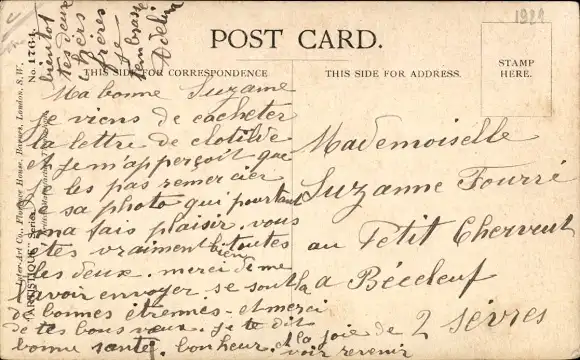 1922
POST CARD.
THIS SIDE FOR CORRESPONDENCE
THIS SIDE FOR ADDRESS.
STAMP
HERE.
Ma bonne Suzanne
je viens de cacheter
la lettre de Clotilde
et je m'apperçoit que
les pas remercier
sa photo qui pourtant
ma fais plaisir. vous
êtes vraiment bien toutes
les deux. merci de me
l'avoir envoyer se sont là
de bonnes étrennes - et merci
de tes bons vœux. je te dit
bonne santé. bonheur. et la joie de
voir revenir
bientot
tes deux
frères
je
t'embrasse
Adeline
Mademoiselle
Suzanne Fourré
au Petit Cherveut
a Béceleuf
2 Sèvres
Inter-Art Co., Florence House, Barnes, London, S.W.
"ARTISTIQUE" Series. No. 1764.